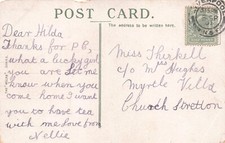 POST CARD.
THE ADDRESS TO BE WRITTEN HERE
Dear Hilda
Thanks for P.C,
what a lucky girl
you are let me
know when you
come home I want
you to have tea
with me love from
Nellie
Miss Thirkell
c/o Mrs Hughes
Myrtle Villa
Church Stretton